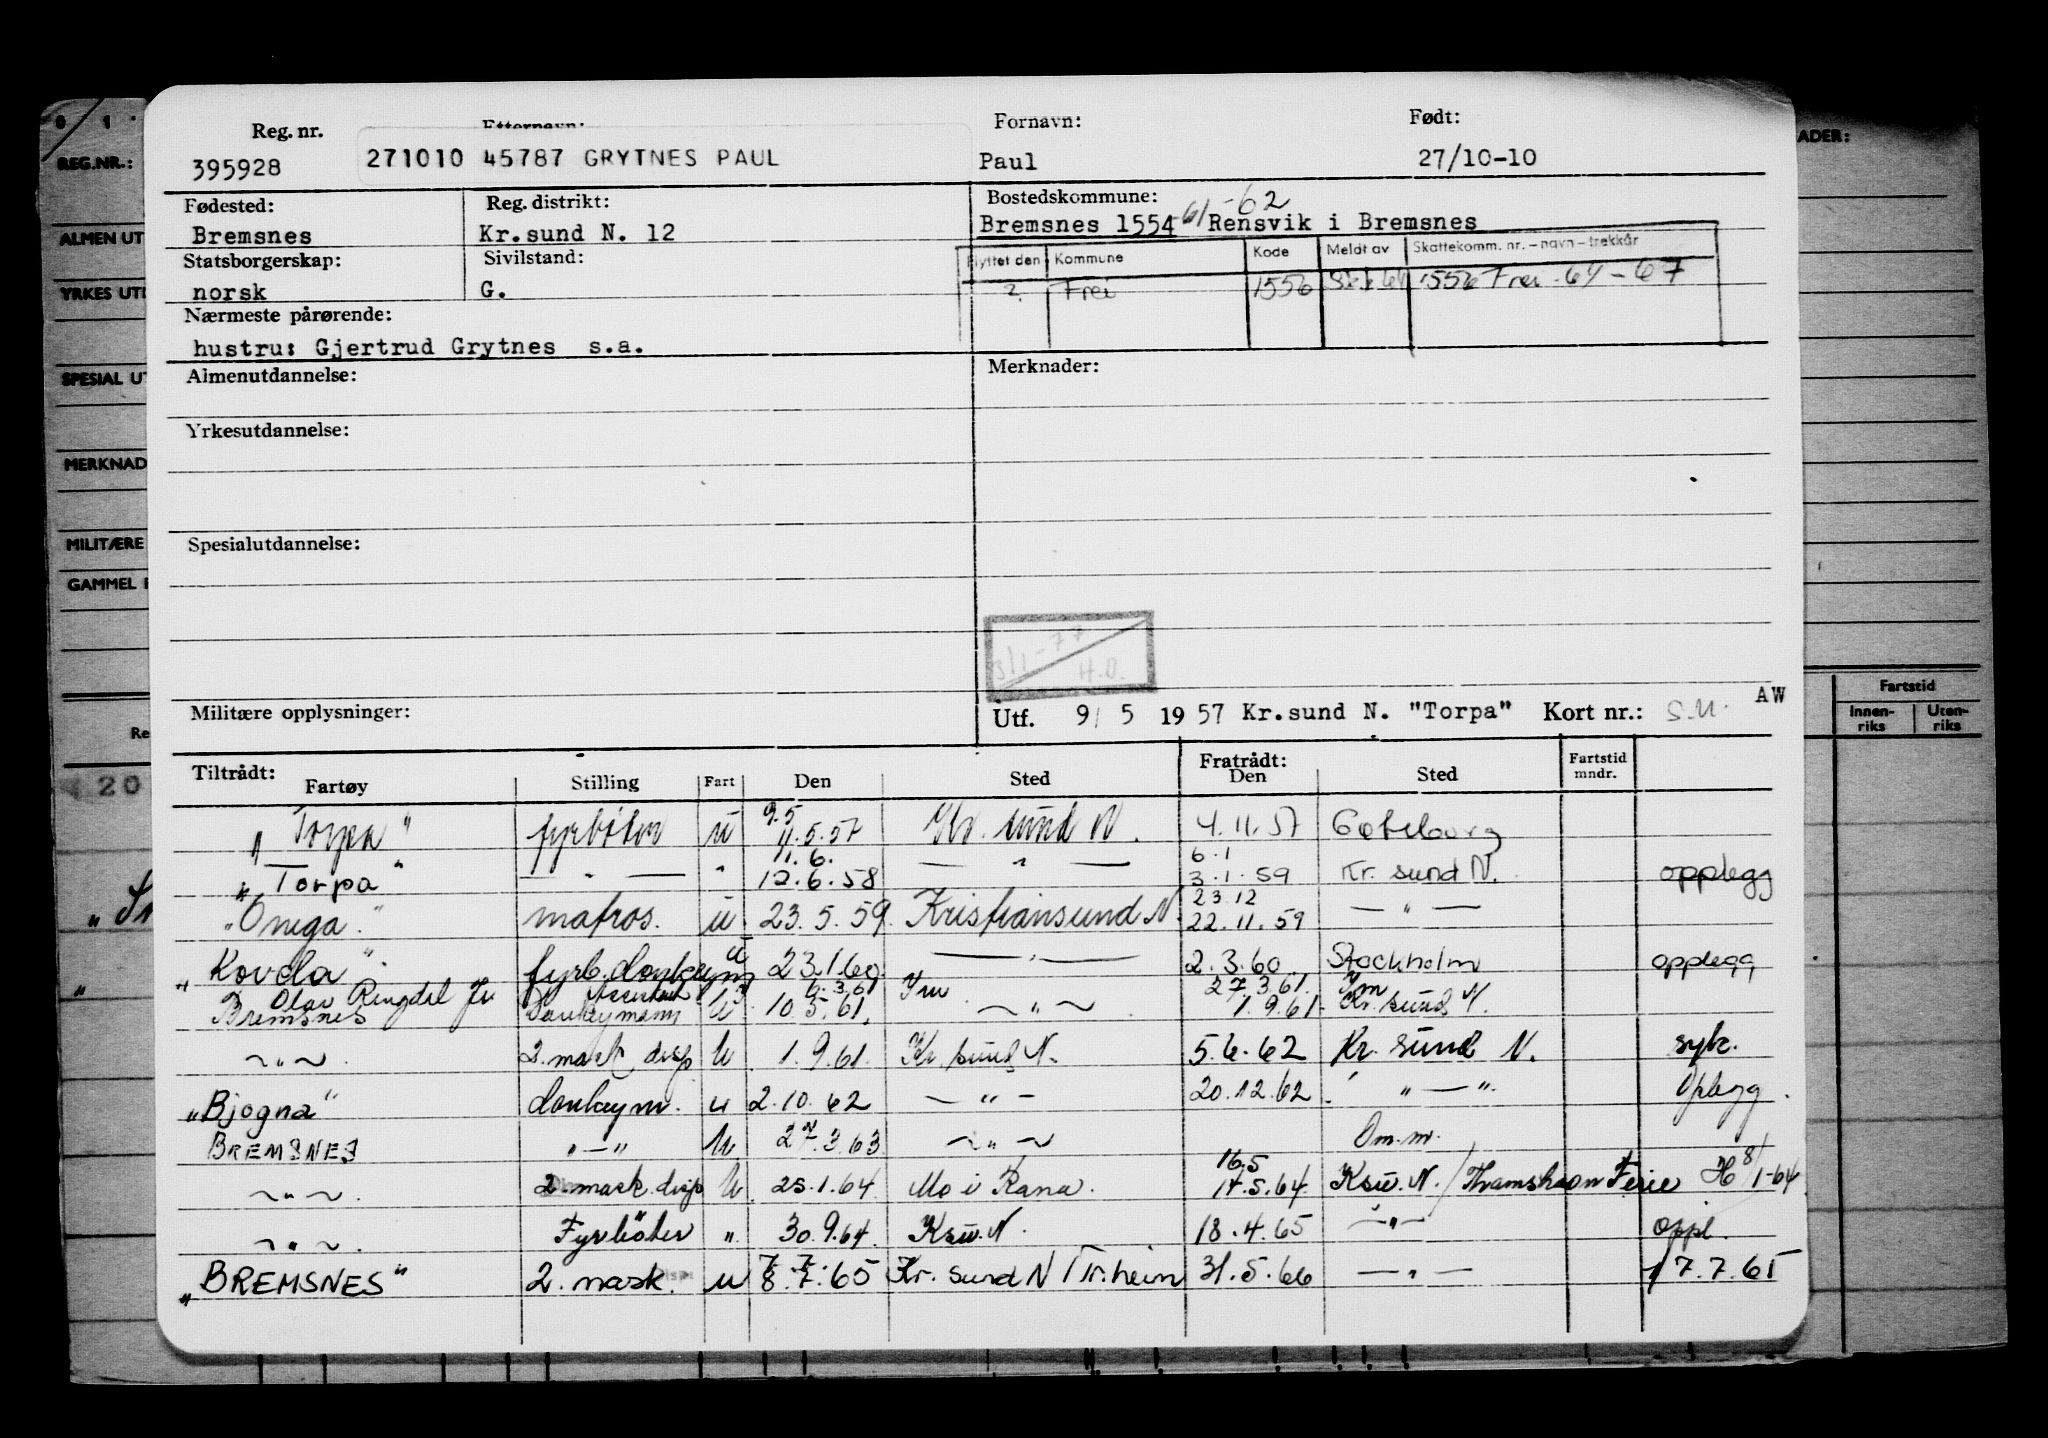 Reg. nr. Etternavn: Fornavn: Født:
395928 271010 45787 GRYTNES PAUL Paul 27/10-10
Fødested: Reg. distrikt: Bostedskommune:
Bremsnes Kr.sund N. 12 Bremsnes 1554 -61-62 Rensvik i Bremsnes
Statsborgerskap: Sivilstand: Flyttet den Kommune Kode Meldt av Skattekomm. nr. – navn – trekkår
norsk G. ? Frei 1556 1556 Frei - 64 - 67
Nærmeste pårørende:
hustru: Gjertrud Grytnes s.a.
Almenutdannelse: Merknader:
Yrkesutdannelse:
Spesialutdannelse:
3/1-77 H.O.
Militære opplysninger: Utf. 9/ 5 1957 Kr.sund N. "Torpa" Kort nr.: S.U. AW
Tiltrådt: Fratrådt: Fartstid
Fartøy Stilling Fart Den Sted Den Sted mndr.
9.5
"Torpa" fyrbøter u 11.5.57 Kr. sund N. 4.11.57 Gøteborg
11.6. 6.1
"Torpa" — " — " 12.6.58 — " — 3.1.59 Kr. sund N. opplegg
23.12
"Omega" matros. u 23.5.59 Kristiansund N. 22.11.59 — " —
"Kovda" fyrb. donkeym u 23.1.60 — " — 2.3.60 Stockholm opplegg
Olav Ringdal Jr Assistent 6.3.61 Ym 27.3.61 Ym
Bremsnes Donkeymann U 10.5.61. ~ " ~ 1.9.61 Kr. sund N.
~ " ~ 2. mask disp U 1.9.61. Kr. sund N. 5.6.62 Kr. sund N. syk.
"Bjogna" donkeym. u 2.10.62 — " — 20.12.62. " — " Oplegg.
BREMSNES " — " U 27.3.63 ~ " ~ Om.m.
16.5
~ " ~ 2. mask. disp U 25.1.64 Mo i Rana. 14.5.64 Ksu. N. / Thamshavn Ferie H 8/1-64
~ " ~ Fyrbøter " 30.9.64. Ksu. N. 18.4.65 — " — oppl.
7.7.
"BREMSNES" 2. mask. disp u 8.7.65 Kr. sund N / Tr.heim 31.5.66 — " — 17.7.65
REG.NR.:
ALMEN UT
YRKES UTD
SPESIAL UT
MERKNAD
MILITÆRE
GAMMEL
Re
20
ADER:
Fartstid
Innen- Uten-
riks riks